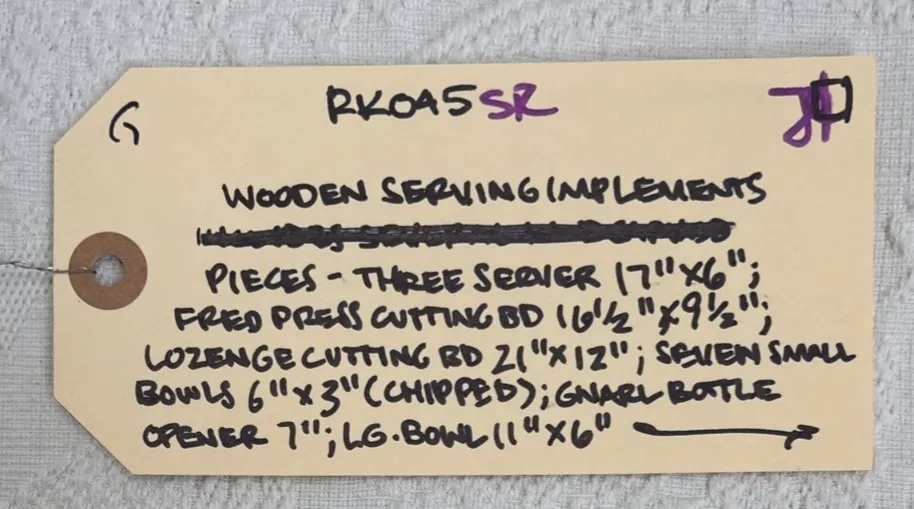 G
RK0A5 SR
WOODEN SERVING IMPLEMENTS
PIECES - THREE SERVER 17"X6";
FRED PRESS CUTTING BD 16 1/2"X9 1/2";
LOZENGE CUTTING BD 21"X12"; SEVEIN SMALL
BOWLS 6"X3"(CHIPPED); GNARL BOTTLE
OPENER 7"; LG. BOWL 11"X6" →